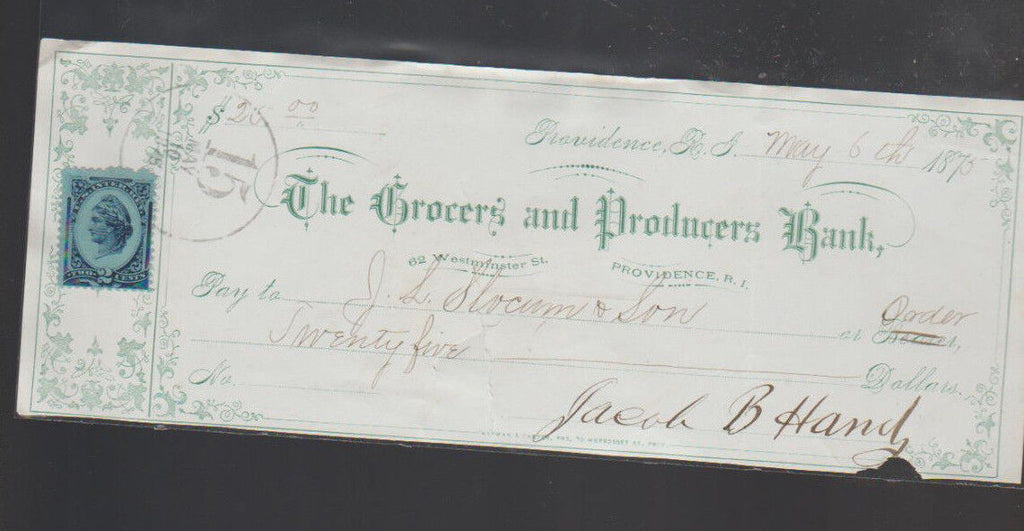 $25 00
Providence, R. I. May 6th 1875
MAY 10 15
The Grocers and Producers Bank,
62 Westminster St. PROVIDENCE, R. I.
U.S. INTER. REV.
TWO 2 CENTS
Pay to J. L. Slocum & Son or Order
Twenty five Dollars.
No.
Jacob B Handy